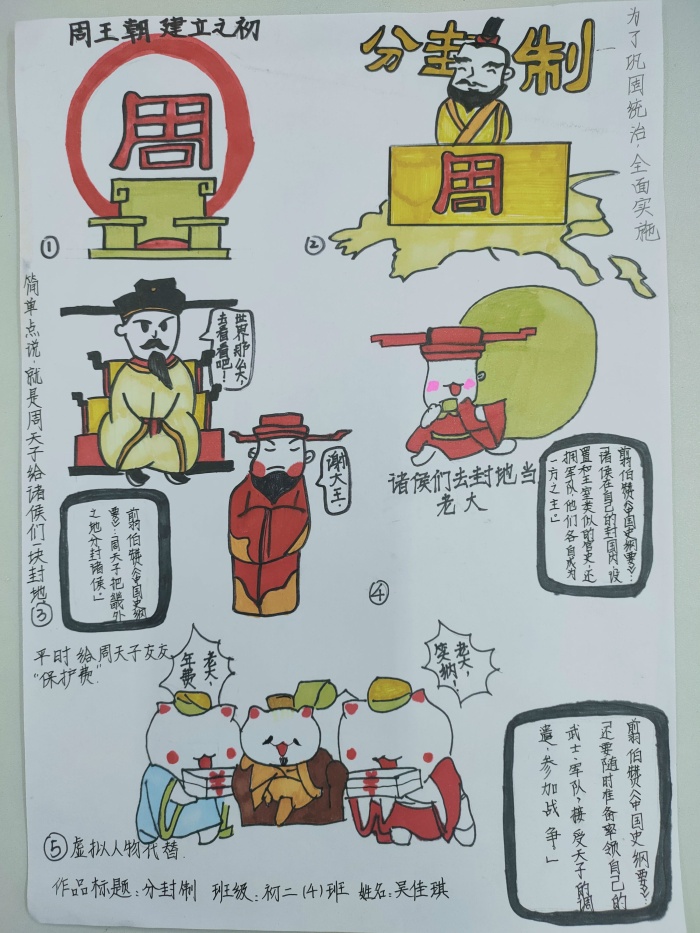 周王朝建立之初
周
①
分封制
周
②
为了巩固统治，全面实施
简单点说，就是周天子给诸侯们一块封地
世界那么大，
去看看吧！
谢大王.
翦伯赞《中国史纲
要》：“周天子把畿外
之地分封诸侯。”
③
诸侯们去封地当
老大
翦伯赞《中国史纲要》：
“诸侯在自己的封国内，设
置和王室类似的官吏，还
拥军队他们各自成为
一方之主。”
④
平时给周天子交交
“保护费.”
老大，
年费
老大，
笑纳！
翦伯赞《中国史纲要》：
“还要随时准备率领自己的
武士、军队，接受天子的调
遣，参加战争。”
⑤虚拟人物代替.
作品标题：分封制 班级：初二(4)班 姓名：吴佳琪